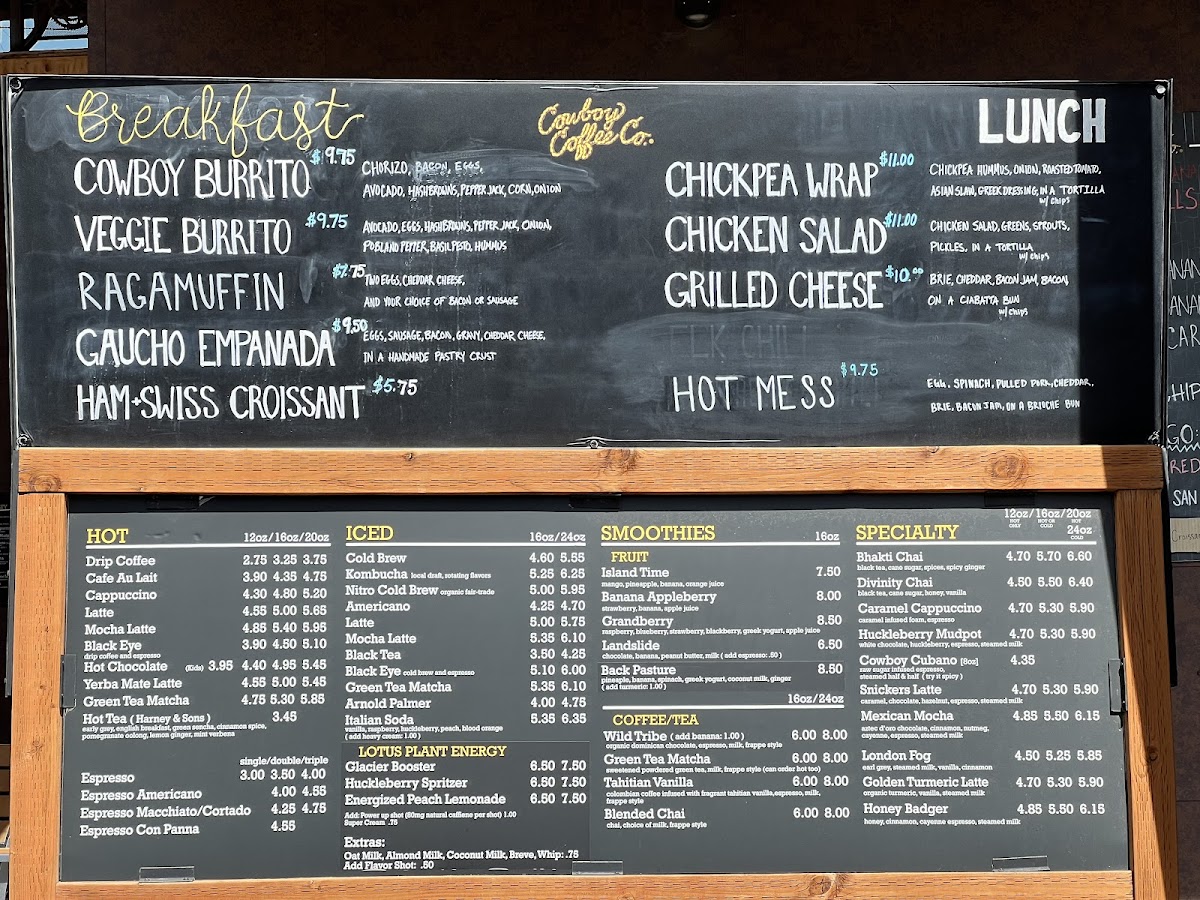 Breakfast
COWBOY BURRITO $9.75
CHORIZO, BACON, EGGS,
AVOCADO, HASHBROWNS, PEPPER JACK, CORN, ONION
VEGGIE BURRITO $9.75
AVOCADO, EGGS, HASHBROWNS, PEPPER JACK, ONION,
POBLANO PEPPER, BASIL PESTO, HUMMUS
RAGAMUFFIN $7.75
TWO EGGS, CHEDDAR CHEESE,
AND YOUR CHOICE OF BACON OR SAUSAGE
GAUCHO EMPANADA $9.50
EGGS, SAUSAGE, BACON, GRAVY, CHEDDAR CHEESE,
IN A HANDMADE PASTRY CRUST
HAM+SWISS CROISSANT $5.75
Cowboy
Coffee Co.
LUNCH
CHICKPEA WRAP $11.00
CHICKPEA HUMMUS, ONION, ROASTED TOMATO,
ASIAN SLAW, GREEK DRESSING, IN A TORTILLA
w/ chips
CHICKEN SALAD $11.00
CHICKEN SALAD, GREENS, SPROUTS,
PICKLES, IN A TORTILLA
w/ chips
GRILLED CHEESE $10.00
BRIE, CHEDDAR, BACON JAM, BACON
ON A CIABATTA BUN
w/ chips
HOT MESS $9.75
EGG, SPINACH, PULLED PORK, CHEDDAR,
BRIE, BACON JAM, ON A BRIOCHE BUN
HOT 12oz/16oz/20oz
Drip Coffee 2.75 3.25 3.75
Cafe Au Lait 3.90 4.35 4.75
Cappuccino 4.30 4.80 5.20
Latte 4.55 5.00 5.65
Mocha Latte 4.85 5.40 5.95
Black Eye 3.90 4.50 5.10
drip coffee and espresso
Hot Chocolate (Kids) 3.95 4.40 4.95 5.45
Yerba Mate Latte 4.55 5.00 5.45
Green Tea Matcha 4.75 5.30 5.85
Hot Tea ( Harney & Sons ) 3.45
early grey, english breakfast, green sencha, cinnamon spice,
pomegranate oolong, lemon ginger, mint verbena
single/double/triple
Espresso 3.00 3.50 4.00
Espresso Americano 4.00 4.55
Espresso Macchiato/Cortado 4.25 4.75
Espresso Con Panna 4.55
ICED 16oz/24oz
Cold Brew 4.60 5.55
Kombucha local draft, rotating flavors 5.25 6.25
Nitro Cold Brew organic fair-trade 5.00 5.95
Americano 4.25 4.70
Latte 5.00 5.75
Mocha Latte 5.35 6.10
Black Tea 3.50 4.25
Black Eye cold brew and espresso 5.10 6.00
Green Tea Matcha 5.35 6.10
Arnold Palmer 4.00 4.75
Italian Soda 5.35 6.35
vanilla, raspberry, huckleberry, peach, blood orange
( add heavy cream: 1.00 )
LOTUS PLANT ENERGY
Glacier Booster 6.50 7.50
Huckleberry Spritzer 6.50 7.50
Energized Peach Lemonade 6.50 7.50
Add: Power up shot (80mg natural caffiene per shot) 1.00
Super Cream .75
Extras:
Oat Milk, Almond Milk, Coconut Milk, Breve, Whip: .75
Add Flavor Shot: .50
SMOOTHIES 16oz
FRUIT
Island Time 7.50
mango, pineapple, banana, orange juice
Banana Appleberry 8.00
strawberry, banana, apple juice
Grandberry 8.50
raspberry, blueberry, strawberry, blackberry, greek yogurt, apple juice
Landslide 6.50
chocolate, banana, peanut butter, milk ( add espresso: .50 )
Back Pasture 8.50
pineapple, banana, spinach, greek yogurt, coconut milk, ginger
( add turmeric: 1.00 )
16oz/24oz
COFFEE/TEA
Wild Tribe ( add banana: 1.00 ) 6.00 8.00
organic dominican chocolate, espresso, milk, frappe style
Green Tea Matcha 6.00 8.00
sweetened powdered green tea, milk, frappe style (can order hot too)
Tahitian Vanilla 6.00 8.00
colombian coffee infused with fragrant tahitian vanilla, espresso, milk,
frappe style
Blended Chai 6.00 8.00
chai, choice of milk, frappe style
SPECIALTY 12oz/16oz/20oz
HOT ONLY HOT OR COLD HOT
24oz
COLD
Bhakti Chai 4.70 5.70 6.60
black tea, cane sugar, spices, spicy ginger
Divinity Chai 4.50 5.50 6.40
black tea, cane sugar, honey, vanilla
Caramel Cappuccino 4.70 5.30 5.90
caramel infused foam, espresso
Huckleberry Mudpot 4.70 5.30 5.90
white chocolate, huckleberry, espresso, steamed milk
Cowboy Cubano [8oz] 4.35
raw sugar infused espresso,
steamed half & half ( try it spicy )
Snickers Latte 4.70 5.30 5.90
caramel, chocolate, hazelnut, espresso, steamed milk
Mexican Mocha 4.85 5.50 6.15
aztec d'oro chocolate, cinnamon, nutmeg,
cayenne, espresso, steamed milk
London Fog 4.50 5.25 5.85
earl grey, steamed milk, vanilla, cinnamon
Golden Turmeric Latte 4.70 5.30 5.90
organic turmeric, vanilla, steamed milk
Honey Badger 4.85 5.50 6.15
honey, cinnamon, cayenne espresso, steamed milk